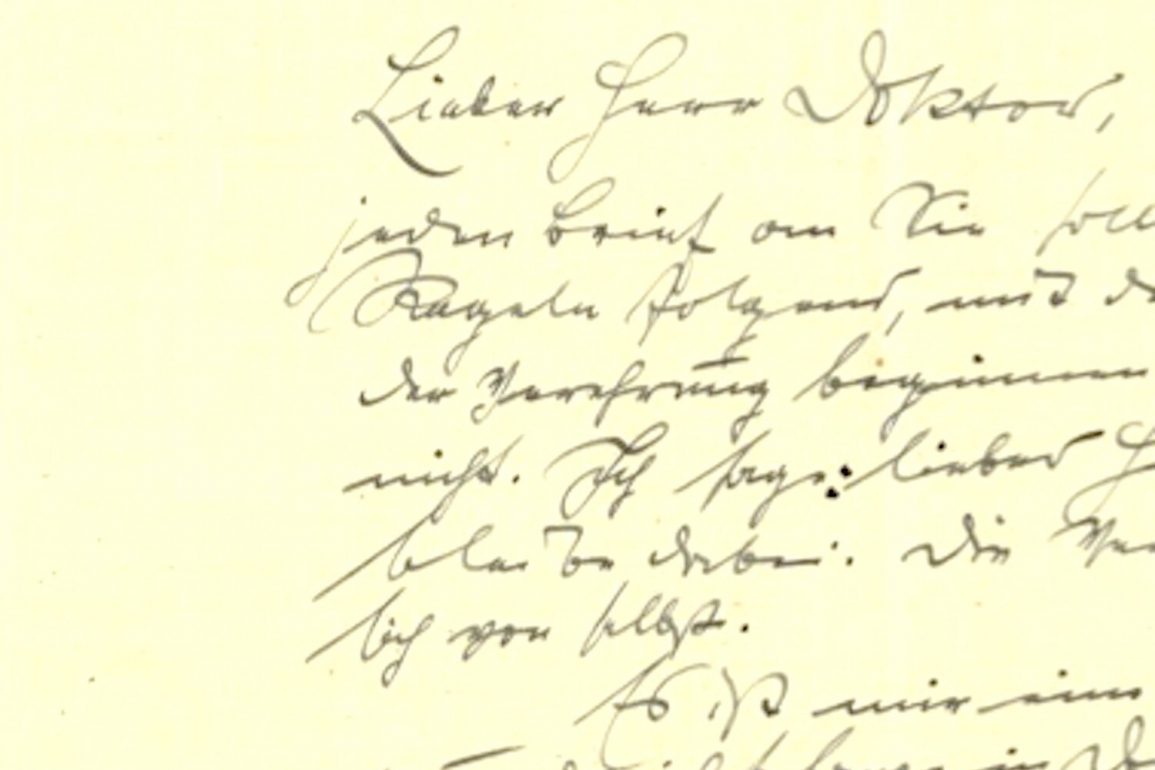 Lieber Herr Doktor,
jeden Brief an Sie soll
Regeln folgend, mit d
der Verehrung beginnen
nicht. Ich sage: lieber H
bleibe dabei. Die Ver
sich von selbst.
Es ist mir eine